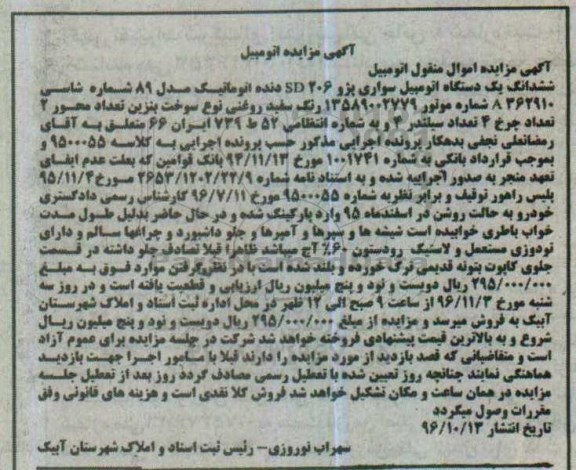 آگهی مزایده اتومبیل
آگهی مزایده اموال منقول اتومبیل
ششدانگ یک دستگاه اتومبیل سواری پژو ۲۰۶ SD دنده اتوماتیک مدل ۸۹ شماره شاسی
۳۶۲۹۱۰ A شماره موتور ۱۳۵۸۹۰۰۲۷۷۹ رنگ سفید روغنی نوع سوخت بنزین تعداد محور ۲
تعداد چرخ ۴ تعداد سیلندر ۴ و به شماره انتظامی ۵۲ ط ۷۳۹ ایران ۶۶ متعلق به آقای
رمضانعلی نجفی بدهکار پرونده اجرایی مذکور حسب پرونده اجرایی به کلاسه ۹۵۰۰۰۵۵ و
بموجب قرارداد بانکی به شماره ۱۰۰۱۷۴۱ مورخ ۹۴/۱۱/۱۳ بانک قوامین که بعلت عدم ایفای
تعهد منجر به صدور اجراییه شده و به استناد نامه شماره ۲۶۵۳/۱۲۰۲/۲۲/۹ مورخ ۹۵/۱۱/۴
پلیس راهور توقیف و برابر نظریه شماره ۹۵۰۰۰۵۵ مورخ ۹۶/۷/۱۱ کارشناس رسمی دادگستری
خودرو به حالت روشن در اسفندماه ۹۵ وارد پارکینگ شده و در حال حاضر بدلیل طول مدت
خواب باطری خوابیده است شیشه ها و سپرها و آمپرها و جلو داشبورد و چراغها سالم و دارای
تودوزی مستعمل و لاستیک رودستون ۶۰٪ آج میباشد ظاهرا قبلا تصادف جلو داشته در قسمت
جلوی کاپوت بتونه قدیمی ترک خورده و بلند شده است با در نظر گرفتن موارد فوق به مبلغ
۲۹۵/۰۰۰/۰۰۰ ریال دویست و نود و پنج میلیون ریال ارزیابی و قطعیت یافته است و در روز سه
شنبه مورخ ۹۶/۱۱/۳ از ساعت ۹ صبح الی ۱۲ ظهر در محل اداره ثبت اسناد و املاک شهرستان
آبیک به فروش میرسد و مزایده از مبلغ ۲۹۵/۰۰۰/۰۰۰ ریال دویست و نود و پنج میلیون ریال
شروع و به بالاترین قیمت پیشنهادی فروخته خواهد شد شرکت در جلسه مزایده برای عموم آزاد
است و متقاضیانی که قصد بازدید از مورد مزایده را دارند قبلا با مامور اجرا جهت بازدید
هماهنگی نمایند چنانچه روز تعیین شده با تعطیل رسمی مصادف گردد روز بعد از تعطیل جلسه
مزایده در همان ساعت و مکان تشکیل خواهد شد فروش کلا نقدی است و هزینه های قانونی وفق
مقررات وصول میگردد
تاریخ انتشار ۹۶/۱۰/۱۳
سهراب نوروزی– رئیس ثبت اسناد و املاک شهرستان آبیک